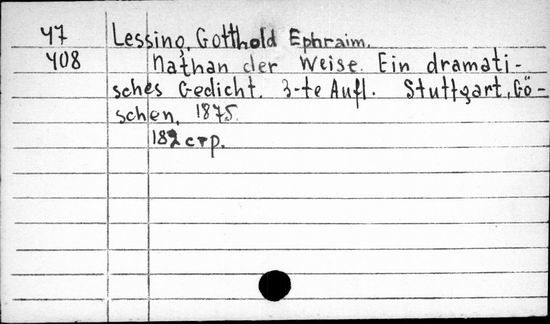 47 Lessing, Gotthold Ephraim.
408 Nathan der Weise. Ein dramati-
sches Gedicht. 3-te Aufl. Stuttgart, Gö-
schen, 1875.
182 стр.